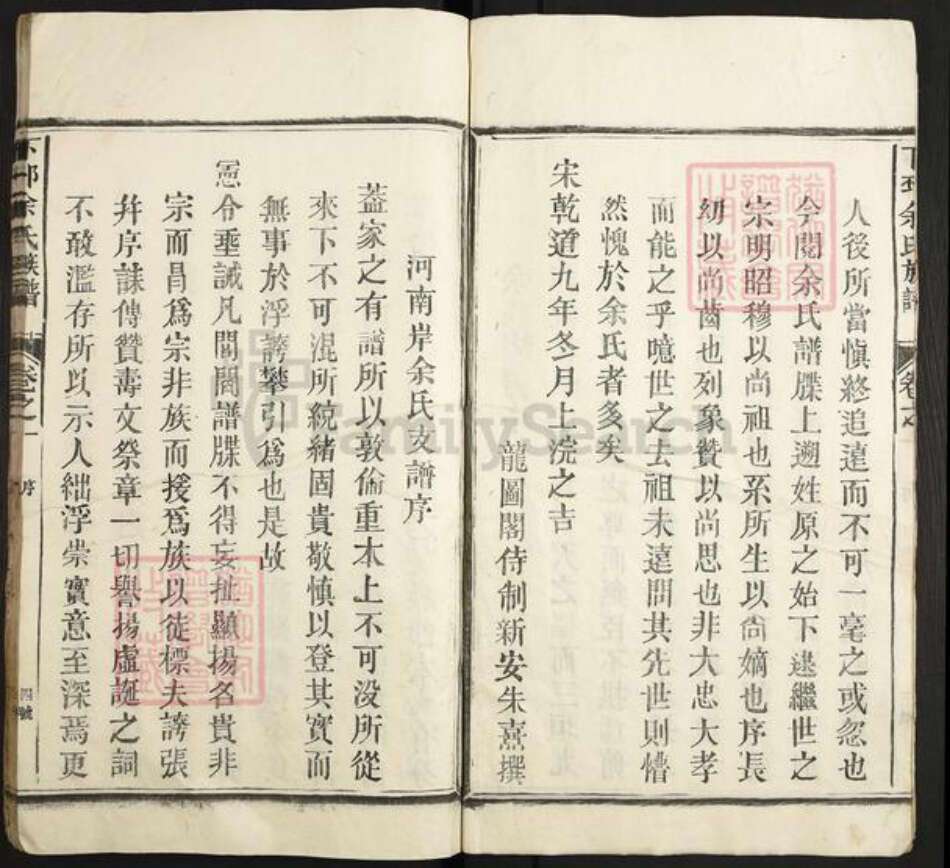 人後所當慎終追遠而不可一毫之或忽也
今閱余氏譜牒上遡姓原之始下逮繼世之
宗明昭穆以尚祖也系所生以尚嫡也序長
幼以尚齒也列象贊以尚思也非大忠大孝
而能之乎噫世之去祖未遠問其先世則懵
然愧於余氏者多矣
龍圖閣侍制新安朱熹撰
宋乾道九年冬月上浣之吉
河南岸余氏支譜序
蓋家之有譜所以敦倫重本上不可没所從
來下不可混所統緒固貴敬慎以登其實而
無事於浮誇攀引爲也是故
憲令垂誡凡閥閱譜牒不得妄扯顯揚名貴非
宗而昌爲宗非族而援爲族以徒標夫誇張
并序誄傳贊壽文祭章一切譽揚虛誕之詞
不敢濫存所以示人絀浮崇實意至深焉更
余氏族譜
卷之一
序
四號
FamilySearch